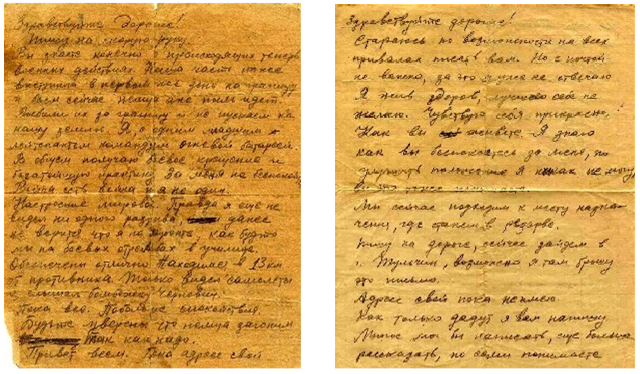 Здравствуйте Дорогие!
Пишу на скорую руку.
Вы знаете конечно о происходящих теперь
военных действиях. Наша часть тоже
выступила в первый же день на границу
и вот сейчас пишу а мы идет
до границы и не пускаем на
нашу землю. Я с одним младшим
лейтенантом командуем огневой батареей.
В общем получаю боевое крещение и
богатейшую практику. За меня не беспокой
Война есть война и я не один.
Настроение мировое. Правда я еще не
видел ни одного разрыва, даже
не верится что я на фронте, как будто
мы на боевых стрельбах в училище.
Обеспечены отлично. Находимся в 13 км
от противника. Только видел самолеты
и слышал бомбежку Черновиц.
Пока все. Побольше спокойствия.
Будьте уверены что немца загоним
так как надо.
Привет всем. Пока адрес свой
Здравствуйте дорогие!
Стараюсь по возможности на всех
привалах писать вам. Но с почтой
не важно, за это я уже не отвечаю
Я жив здоров, лучшего себе не
желаю. Чувствую себя прекрасно.
Как вы живете. Я знаю
как вы беспокоитесь за меня, но
улучшить положение я никак не могу
Мы сейчас подходим к месту назна-
чения, где станем в резерве.
Пишу на дороге, сейчас зайдем в
г. Тульчин, возможно я там брошу
это письмо.
Адреса свой пока не имею.
Как только дадут я вам напишу
Много мог бы написать, еще больше
рассказать, но сами понимаете